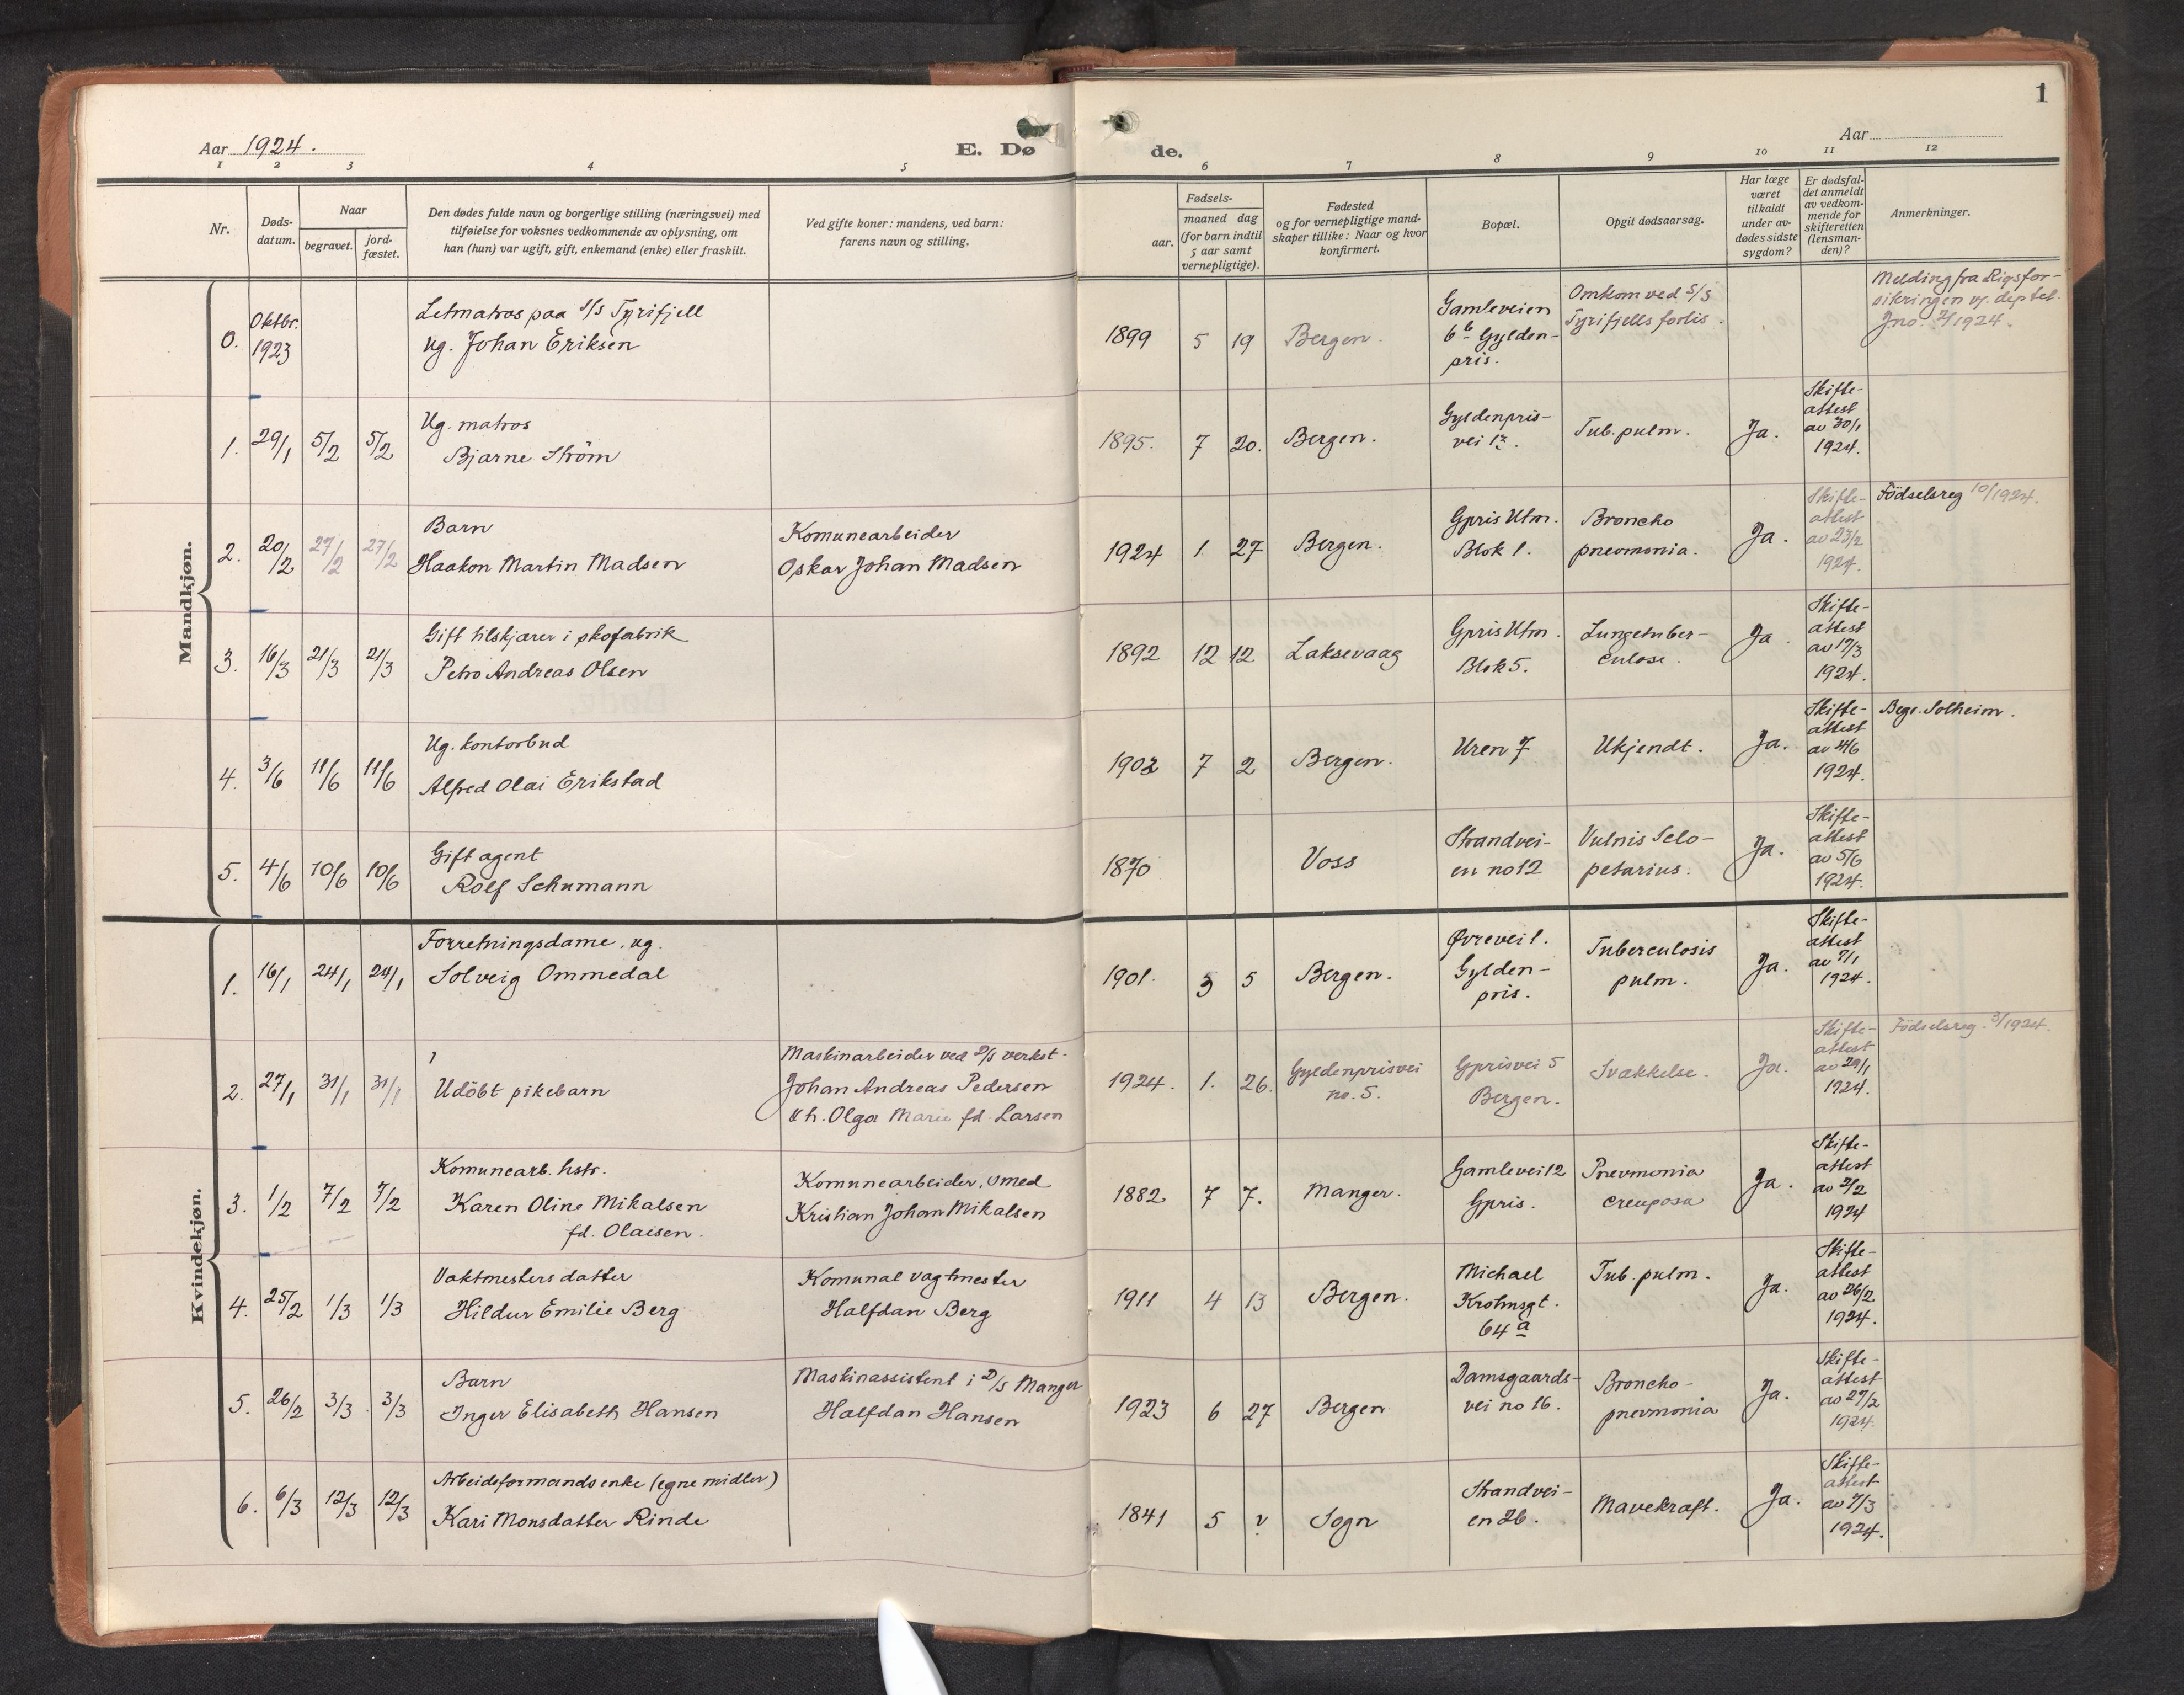 1
Aar 1924.
E. Dø
de.
Aar
1 2 3 4 5 6 7 8 9 10 11 12
Nr.
Døds-
datum.
Naar
begravet.
jord-
fæstet.
Den dødes fulde navn og borgerlige stilling (næringsvei) med
tilføielse for voksnes vedkommende av oplysning, om
han (hun) var ugift, gift, enkemand (enke) eller fraskilt.
Ved gifte koner: mandens, ved barn:
farens navn og stilling.
Fødsels-
aar.
maaned dag
(for barn indtil
5 aar samt
vernepligtige).
Fødested
og for vernepligtige mand-
skaper tillike: Naar og hvor
konfirmert.
Bopæl.
Opgit dødsaarsag.
Har læge
været
tilkaldt
under av-
dødes sidste
sygdom?
Er dødsfal-
det anmeldt
av vedkom-
mende for
skifteretten
(lensman-
den)?
Anmerkninger.
Mandkjøn.
0.
Oktbr.
1923
Letmatros paa S/S Tyrifjell
ug. Johan Eriksen
1899 5 19 Bergen.
Gamleveien
6b Gylden-
pris.
Omkom ved S/S
Tyrifjells forlis.
Melding fra Rigsfor-
sikringen og deptet.
Jno. 2/1924.
1. 29/1 5/2 5/2
Ug. matros
Bjarne Ström
1895. 7 20. Bergen.
Gyldenpris-
vei
Tub. pulm.
Ja.
Skifte-
attest
av 30/1
1924.
2. 20/2 27/2 27/2
Barn
Haakon Martin Madsen
Komunearbeider
Oskar Johan Madsen
1924 1 27 Bergen.
Gpris Utm.
Blok 1.
Broncho
pneomonia.
Ja.
Skifte-
attest
av 23/2
1924.
Födselsreg 10/1924.
3. 16/3 21/3 21/3
Gift tilskjærer i skofabrik
Petro Andreas Olsen
1892 12 12 Laksevaag
Gpris Utm.
Blok 5.
Lungetuber-
culose.
Ja
Skifte-
attest
av 17/3
1924.
4. 3/6 11/6 11/6
Ug. kontorbud
Alfred Olai Erikstad
1902 7 2 Bergen.
Uren 7
Ukjendt.
Ja.
Skifte-
attest
av 4/6
1924.
Begr. Solheim.
5. 4/6 10/6 10/6
Gift agent
Rolf Schumann
1870 Voss
Strandvei-
en no 12
Vulnis Sclo-
petarius.
Ja.
Skifte-
attest
av 5/6
1924.
Kvindekjøn.
1. 16/1 24/1 24/1
Forretningsdame, ug.
Solveig Ommedal
1901. 3 5 Bergen.
Øvrevei 1.
Gylden-
pris.
Tuberculosis
pulm.
Ja.
Skifte-
attest
av
1924.
2. 27/1 31/1 31/1
Udöbt pikebarn
Maskinarbeider ved D/S verkst.
Johan Andreas Pedersen
o h. Olga Marie fd. Larsen
1924. 1. 26.
Gyldenprisvei
no. 5.
Gprisvei 5
Bergen.
Svakkelse.
Ja.
Skifte-
attest
av 29/1
1924.
Födselsreg. 3/1924.
3. 1/2 7/2 7/2
Komunearb. hstr.
Karen Oline Mikalsen
fd. Olaisen.
Komunearbeider, smed
Kristian Johan Mikalsen
1882 7 7. Manger.
Gamlevei 12
Gpris.
Pnevmonia
creuposa
Ja.
Skifte-
attest
av 2/2
1924
4. 25/2 1/3 1/3
Vaktmesters datter
Hildur Emilie Berg
Komunal vagtmester
Halfdan Berg
1911 4 13 Bergen.
Michael
Krohnsgt.
64 a
Tub. pulm.
Ja.
Skifte-
attest
av 26/2
1924.
5. 26/2 3/3 3/3
Barn
Inger Elisabeth Hansen
Maskinassistent i D/S Manger
Halfdan Hansen
1923 6 27 Bergen
Damsgaards-
vei no 16.
Broncho-
pnevmonia
Ja.
Skifte-
attest
av 27/2
1924.
6. 6/3 12/3 12/3
Arbeidsformandsenke (egne midler)
Kari Monsdatter Rinde
1841 5 ? Sogn
Strandvei-
en 26.
Mavekræft.
Ja.
Skifte-
attest
av 7/3
1924.